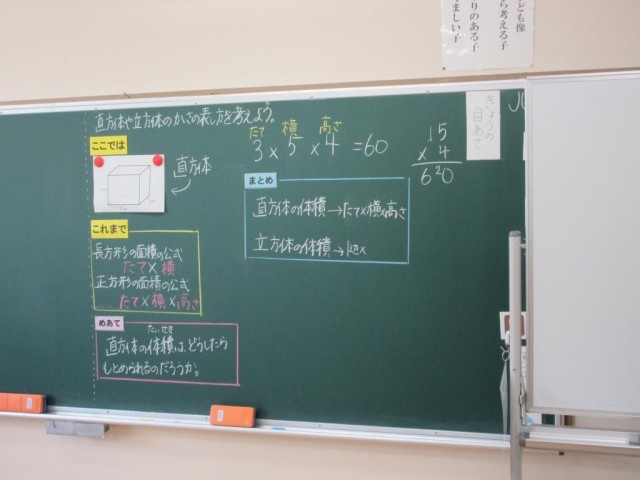 ども像
ら考える子
りのある子
ましい子
きょうの
目あて
直方体や立方体のかさの表し方を考えよう。
ここでは
直方体
これまで
長方形の面積の公式
たて×横
正方形の面積の公式
たて×横×高さ
めあて
たいせき
直方体の体積は、どうしたら
もとめられるのだろうか。
たて 横 高さ
3×5×4=60
15
×4
620
まとめ
直方体の体積→たて×横×高さ
立方体の体積→